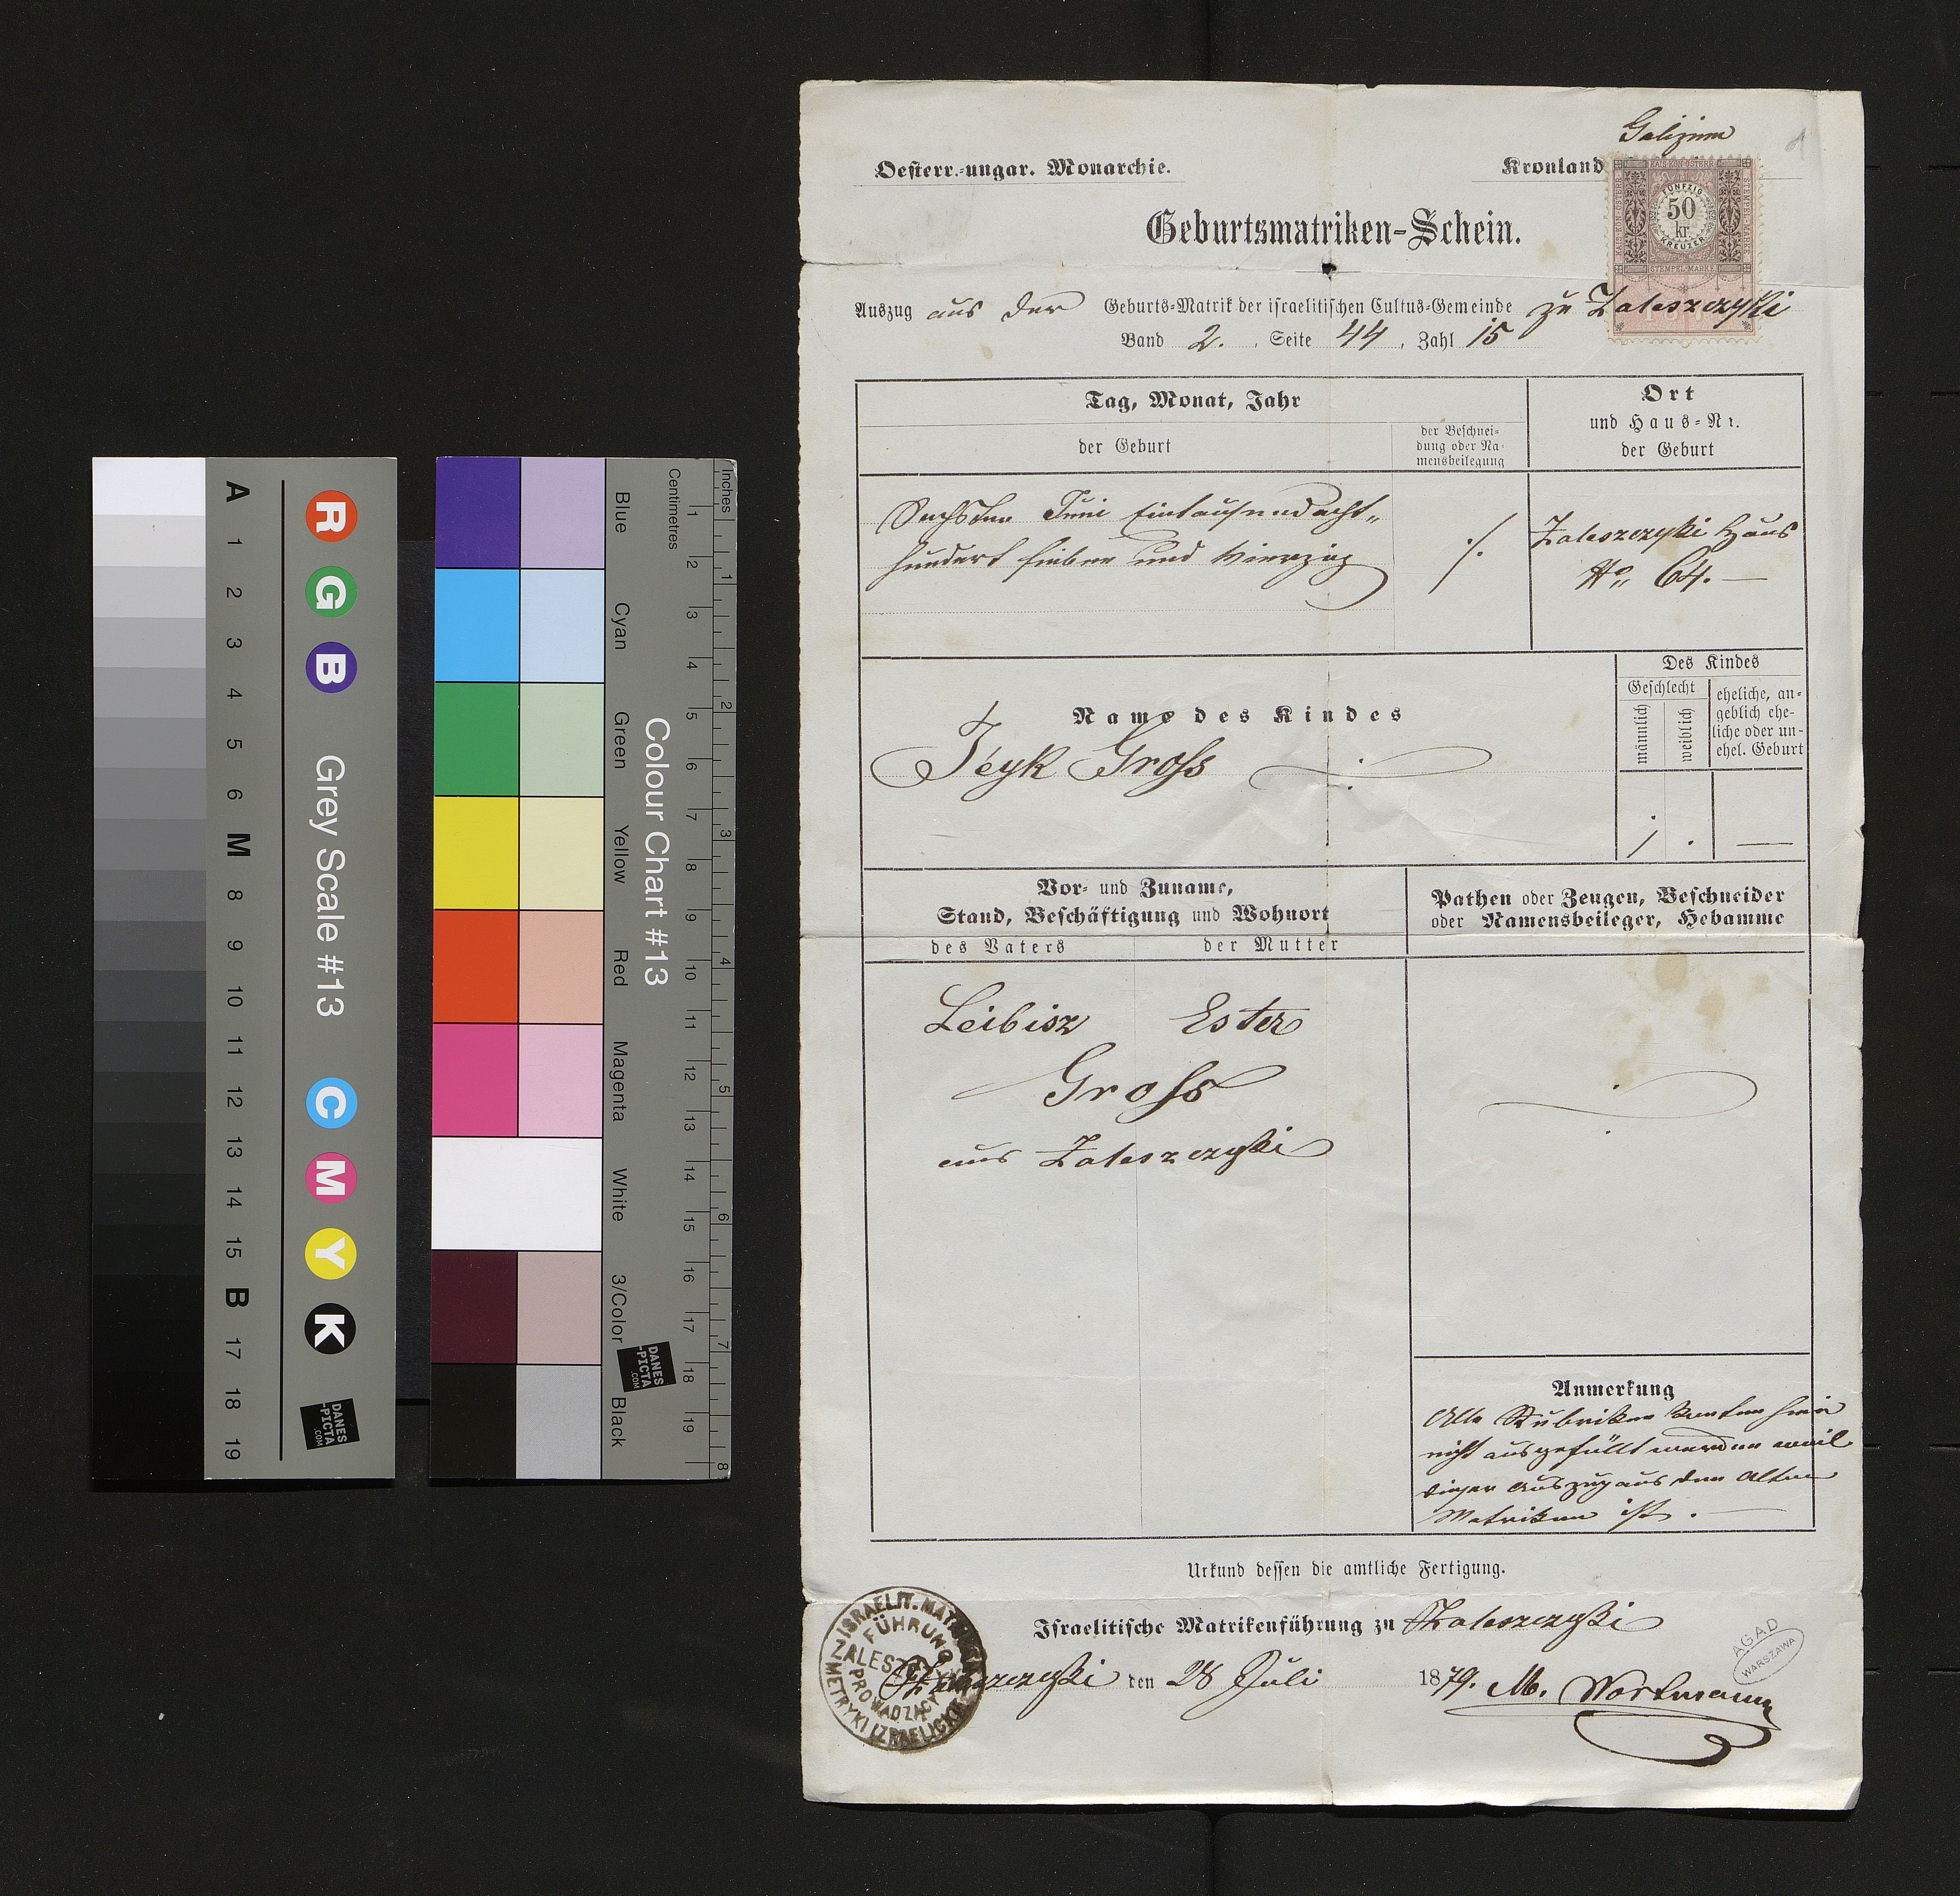 Galizien
Oesterr.-ungar. Monarchie.
Kronland
KAIS·KÖN·ÖSTERR
FÜNFZIG
50
kr.
KREUZER
STEMPEL-MARKE
Geburtsmatriken-Schein.
Auszug aus der Geburts-Matrik der israelitischen Cultus-Gemeinde zu Zaleszczyki
Band 2. , Seite 44 , Zahl 15
Tag, Monat, Jahr
der Geburt
der Beschnei-
dung oder Na-
mensbeilegung
Ort
und Haus-Nr.
der Geburt
Sechsten Juni Eintausendacht„
hundert sieben und vierzig
./.
Zaleszczyki Haus
No„ 64. —
Name des Kindes
Des Kindes
Geschlecht
männlich
weiblich
eheliche, an-
geblich ehe-
liche oder un-
ehel. Geburt
Gross
1 . —
Vor- und Zuname,
Stand, Beschäftigung und Wohnort
des Vaters
der Mutter
Pathen oder Zeugen, Beschneider
oder Namensbeileger, Hebamme
Leibisz Ester
Gross
aus Zaleszczyki
Anmerkung
Alle Rubriken konnten hier
nicht ausgefüllt werden weil
dieser Auszug aus den alten
Matriken ist. —
Urkund dessen die amtliche Fertigung.
Israelitische Matrikenführung zu Zaleszczyki
Zaleszczyki den 28 Juli 1879. M. Wortmann
ISRAELIT. MATRIKEN
FÜHRUNG
ZALESZCZYKI
PROWADZĄCY
METRYKI IZRAELICKIE
AGAD
WARSZAWA
A
1
2
3
4
5
6
M
8
9
10
11
12
13
14
15
B
17
18
19
R G B
Grey Scale #13
C M Y K
DANES
-PICTA
.COM
Blue
Cyan
Green
Yellow
Red
Magenta
White
3/Color
Black
Colour Chart #13
DANES
-PICTA
.COM
Centimetres
1 2 3 4 5 6 7 8 9 10 11 12 13 14 15 16 17 18 19
Inches
1 2 3 4 5 6 7 8